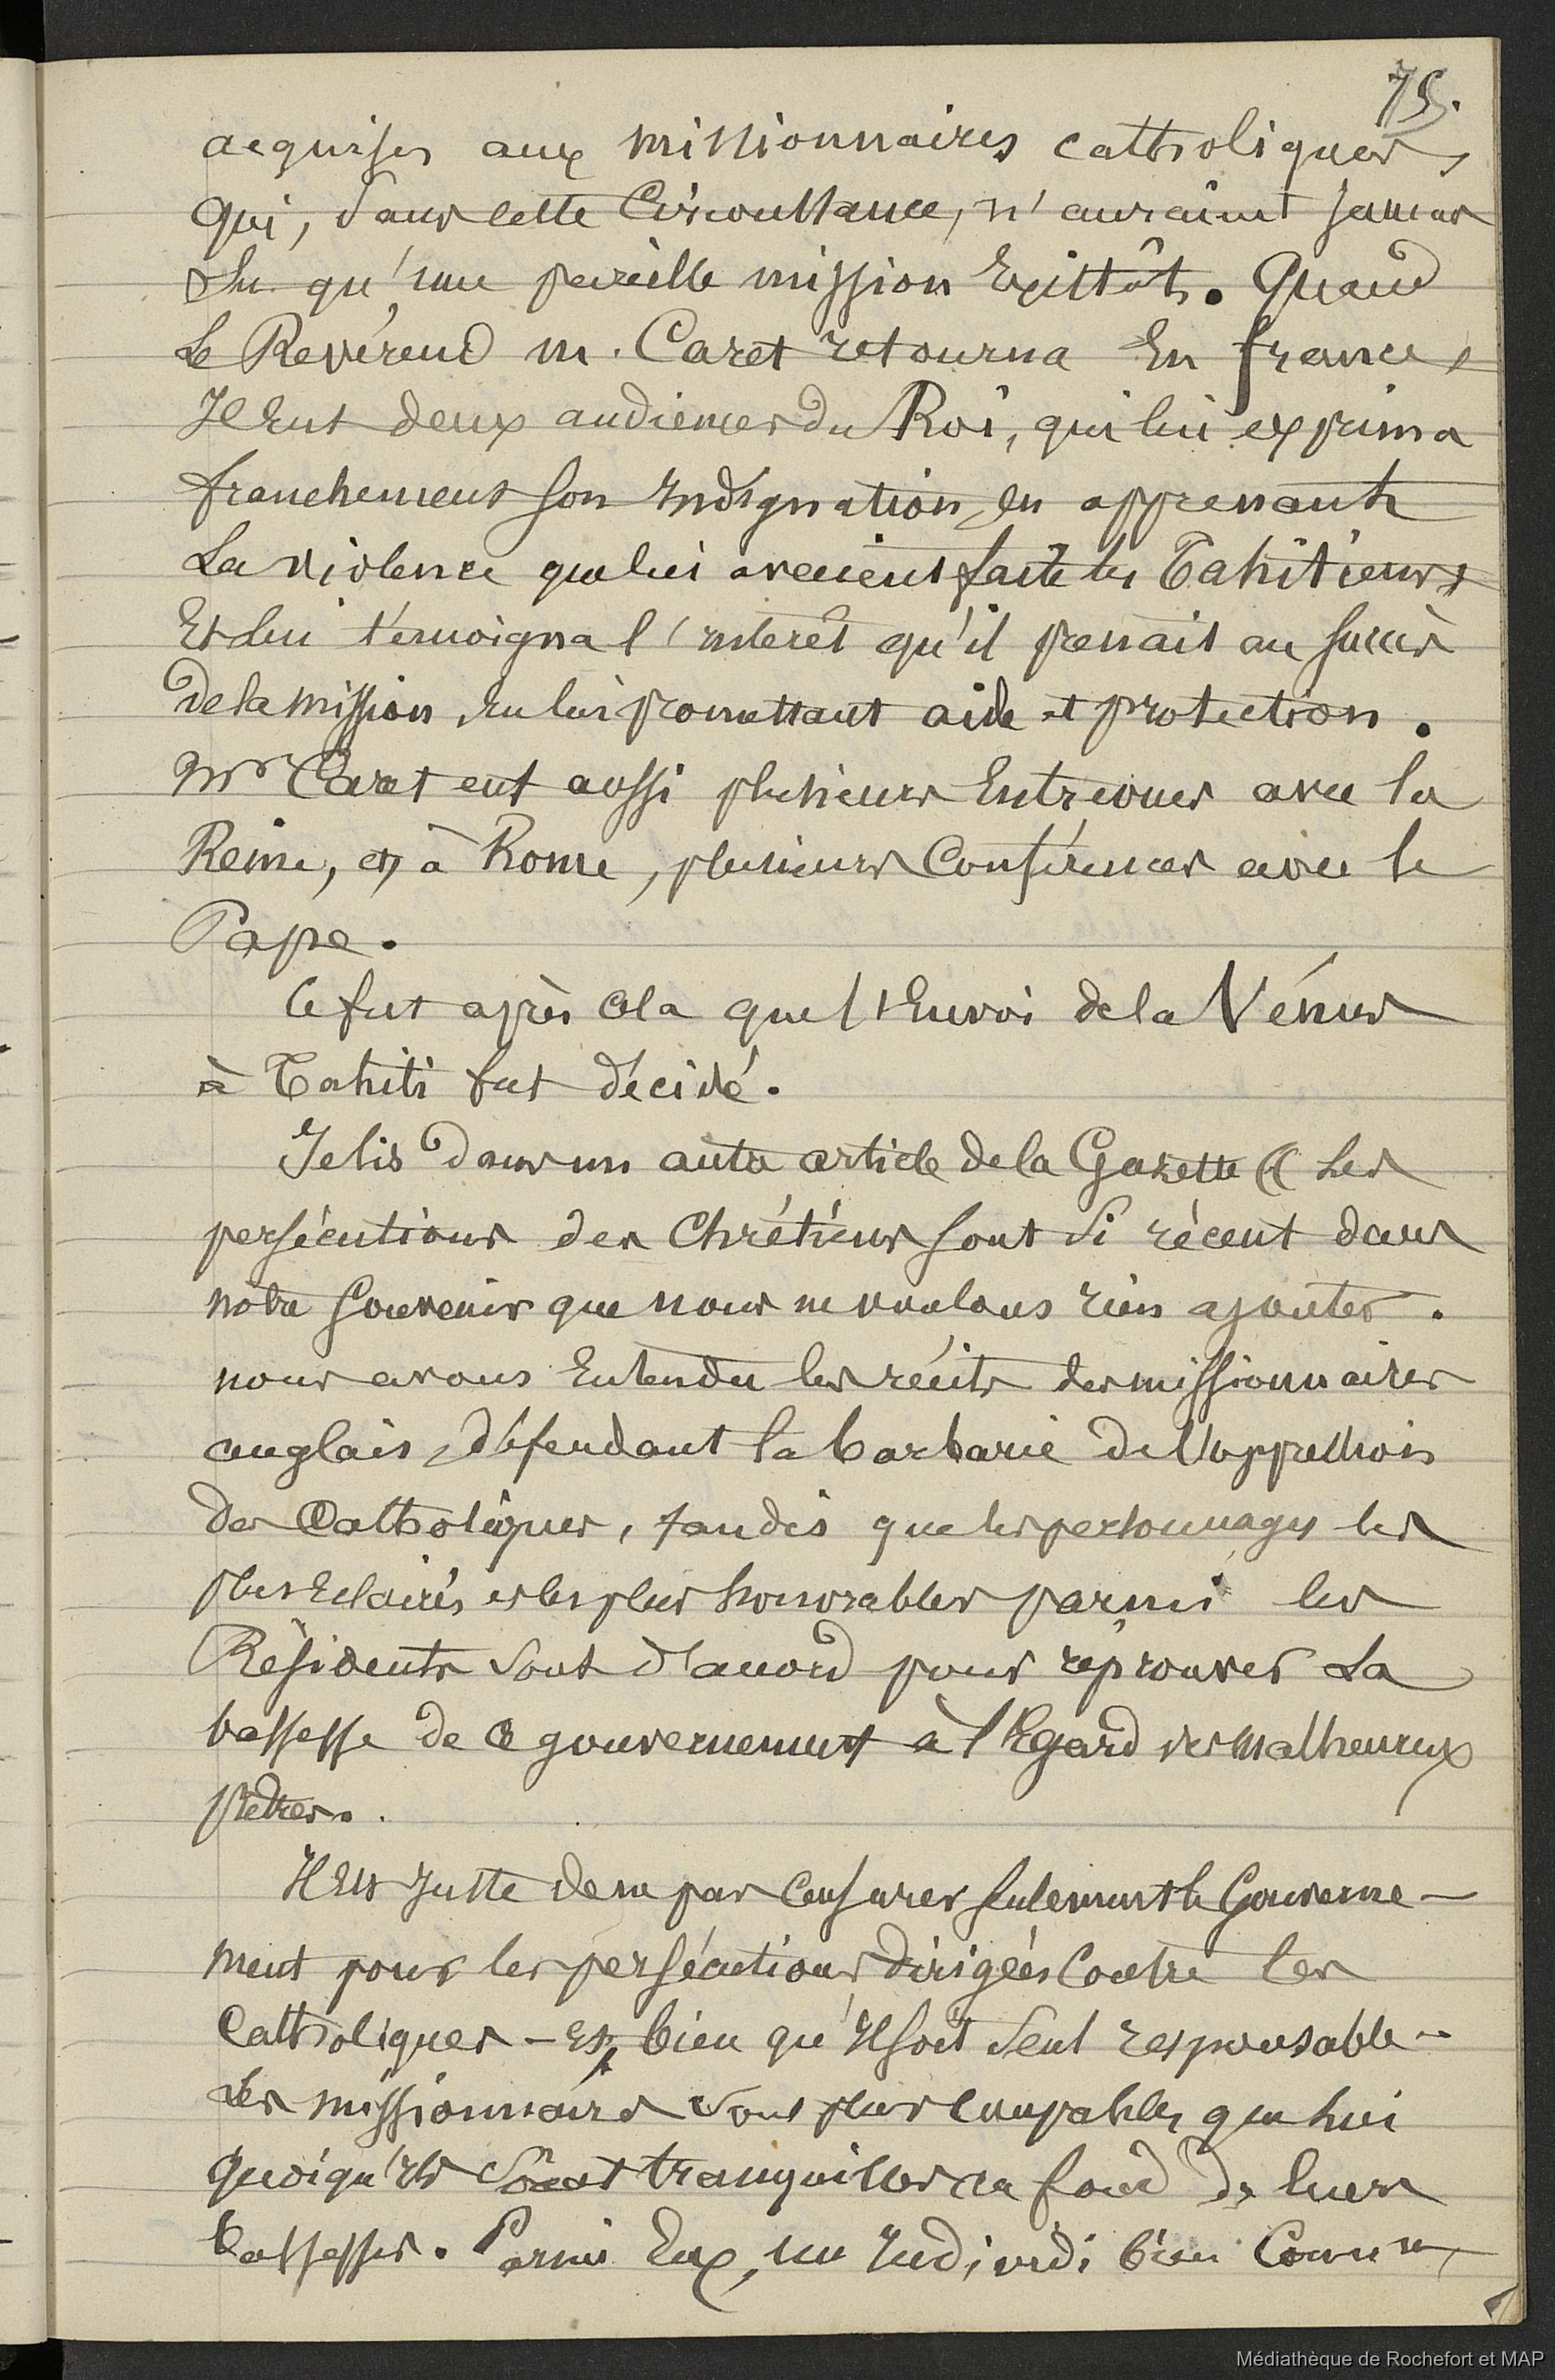 75.
acquises aux missionnaires catholiques,
qui, dans cette Circonstance, n'auraient jamais
su qu'une pareille mission Existât. Quand
Le Revérend m. Caret retourna En france,
Il Eut deux audiences du Roi, qui lui exprima
franchement son Indignation, En apprenant
La violence que lui avaient faite les Tahitiens,
Et lui témoigna l'Interêt qu'il prenait au succès
de la mission, En lui promettant aide et protection.
Mr Caret eut aussi plusieurs Entrevues avec la
Reine, et, à Rome, plusieurs Conférences avec le
Pape.
Ce fut après cela que l'Envoi de la Vénus
à Tahiti fut décidé.
Je lis dans un autre article de la Gazette « Les
persécutions des Chrétiens sont si récent dans
notre souvenir que nous ne voulons rien ajouter.
nous avons Entendu les récits des missionnaires
anglais, défendant la barbarie de l'oppression
des Catholiques, tandis que les personnages les
plus Eclairés et les plus honorables parmi les
Résidents sont d'accord pour réprouver La
bassesse de ce gouvernement à l'Egard des malheureux
prêtres.
Il Est Juste de ne pas Censurer seulement le Gouverne-
ment pour les persécutions dirigées Contre les
Catholiques - Et, bien qu'Il soit seul responsable -
Les missionnaires sont plus Coupables que lui
quoiqu'Ils sont tranquilles au fond de leurs
bassesses. Parmi Eux, un Individi bien Connu,
Médiathèque de Rochefort et MAP